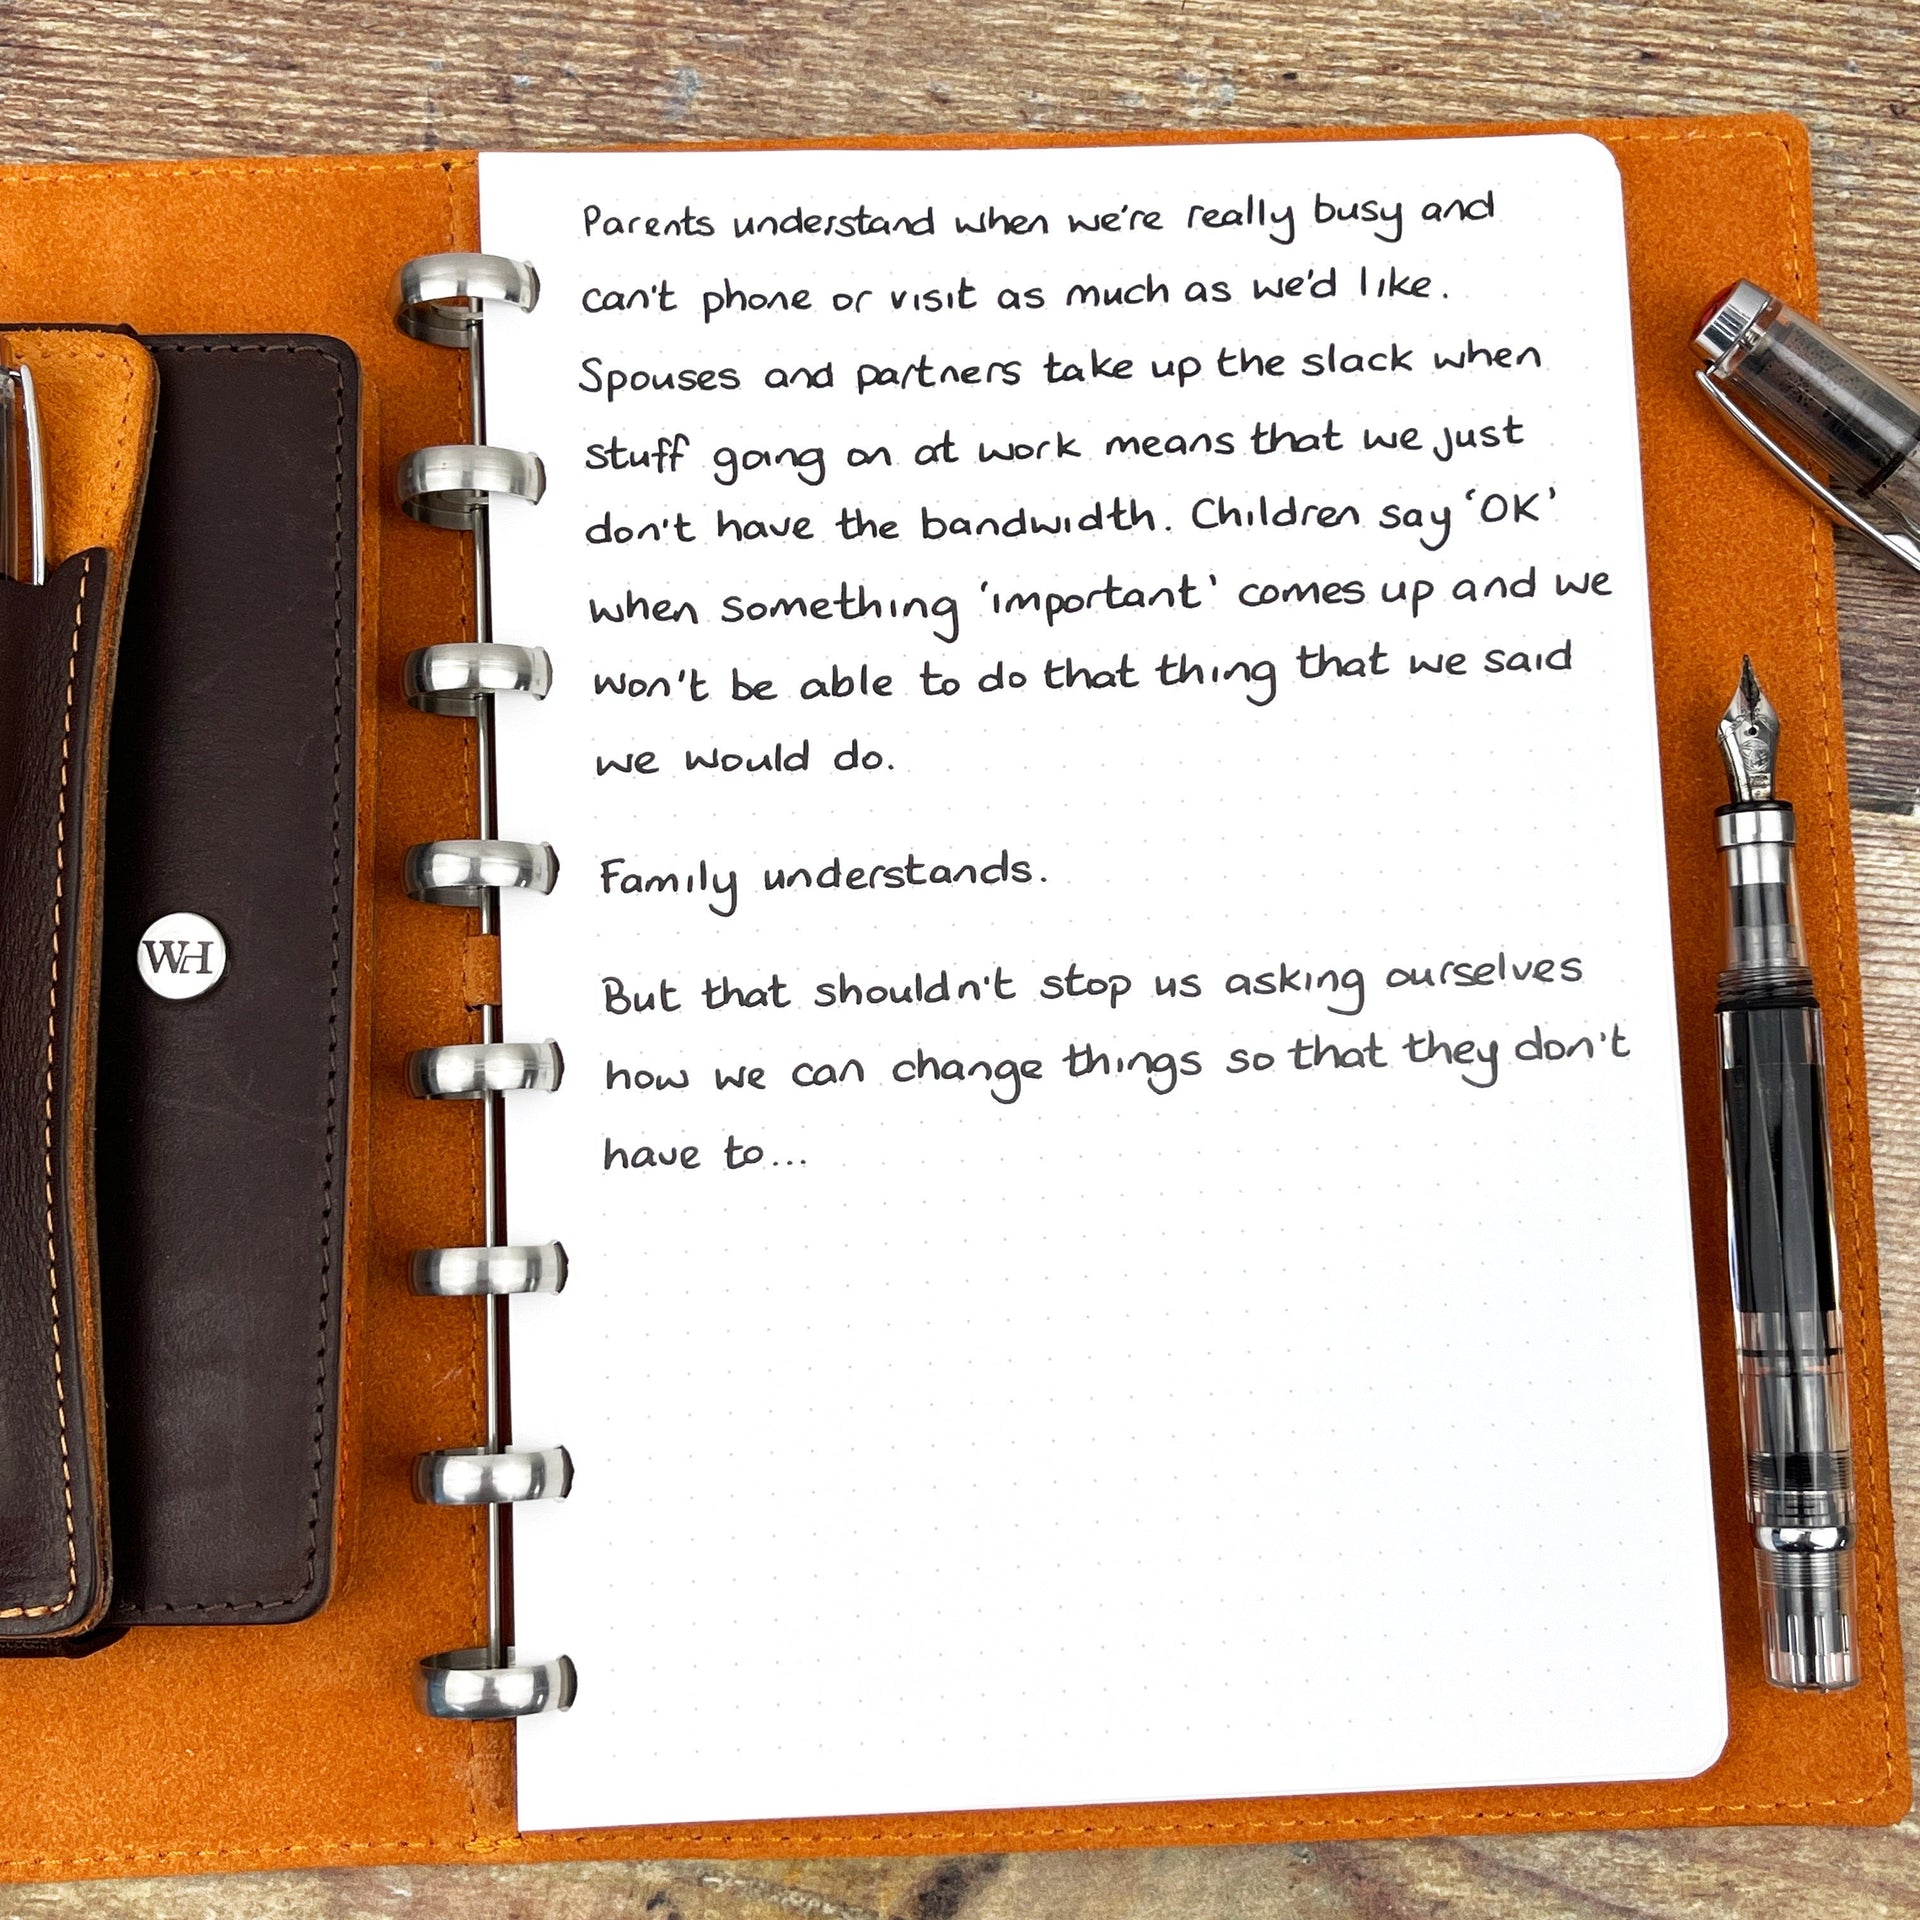 Parents understand when we're really busy and
can't phone or visit as much as we'd like.
Spouses and partners take up the slack when
stuff going on at work means that we just
don't have the bandwidth. Children say 'OK'
when something 'important' comes up and we
won't be able to do that thing that we said
we would do.
Family understands.
But that shouldn't stop us asking ourselves
how we can change things so that they don't
have to...
WH